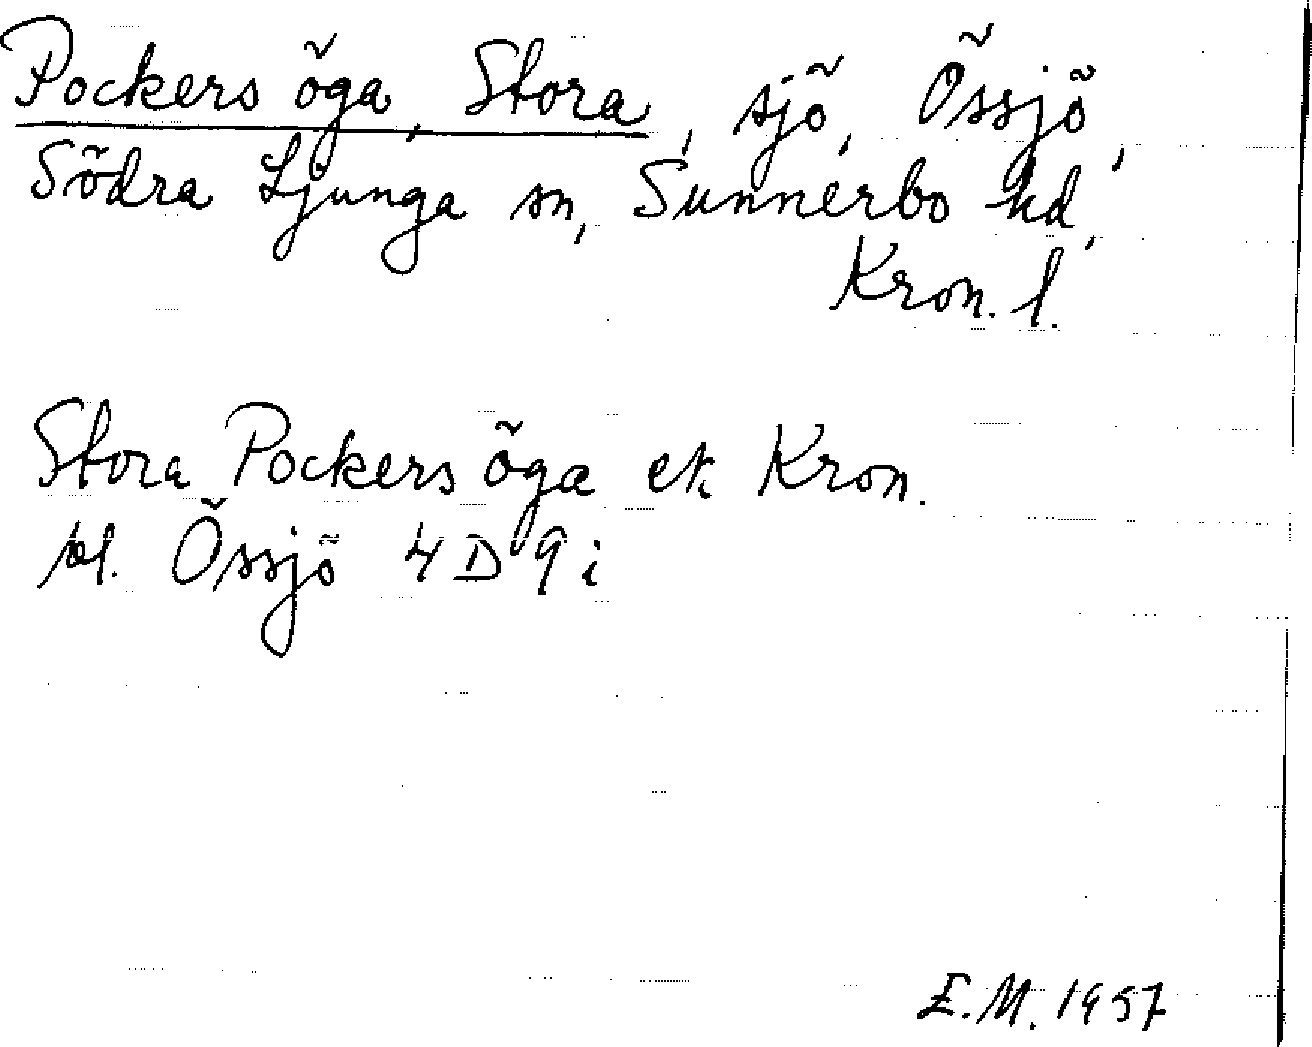 Pockers öga, Stora, sjö, Össjö,
Södra Ljunga sn, Sunnerbo hd,
Kron. l.
Stora Pockers öga ek Kron.
bl. Össjö 4 D 9 i
E.M. 1957